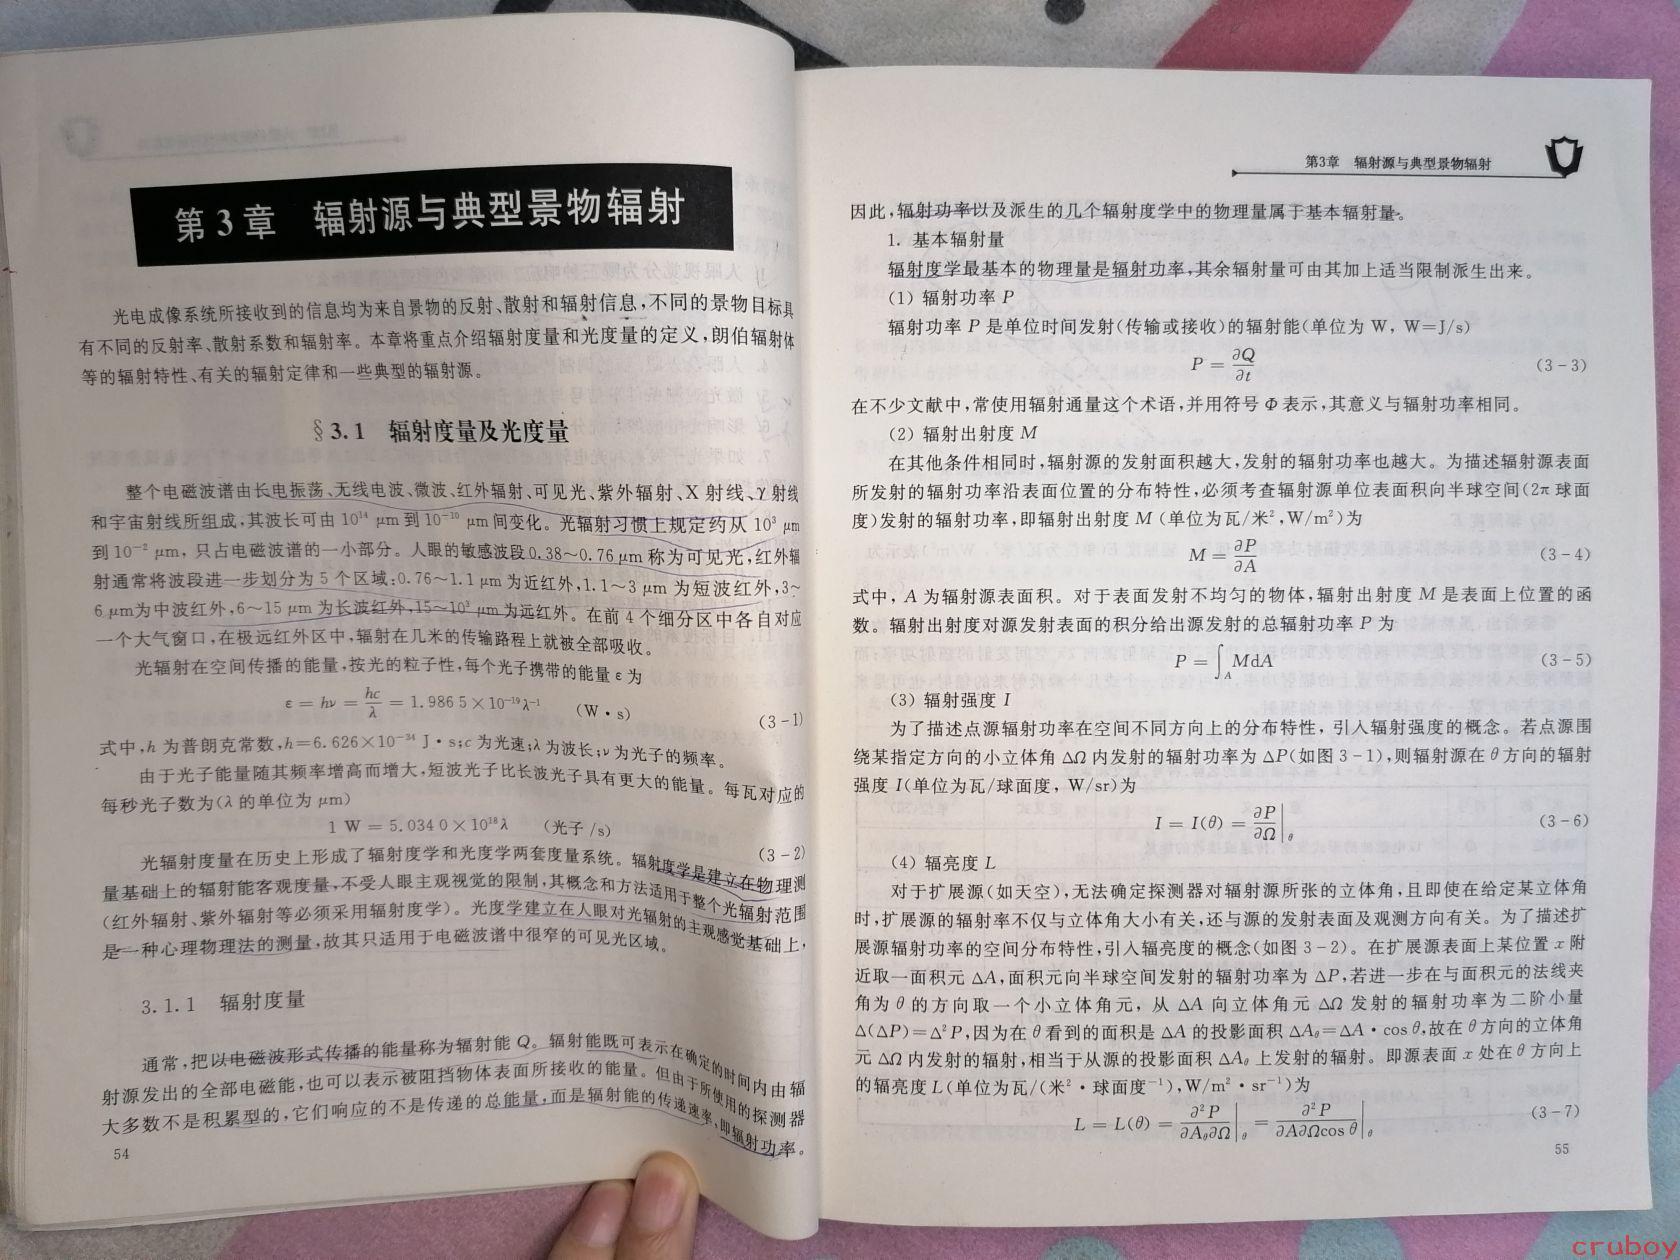 第3章 辐射源与典型景物辐射
光电成像系统所接收到的信息均为来自景物的反射、散射和辐射信息，不同的景物目标具
有不同的反射率、散射系数和辐射率。本章将重点介绍辐射度量和光度量的定义，朗伯辐射体
等的辐射特性、有关的辐射定律和一些典型的辐射源。
§3.1 辐射度量及光度量
整个电磁波谱由长电振荡、无线电波、微波、红外辐射、可见光、紫外辐射、X射线、γ射线
和宇宙射线所组成，其波长可由10¹⁴ μm到10⁻¹⁰ μm间变化。光辐射习惯上规定约从10³ μm
到10⁻² μm，只占电磁波谱的一小部分。人眼的敏感波段0.38～0.76 μm称为可见光，红外辐
射通常将波段进一步划分为5个区域：0.76～1.1 μm为近红外，1.1～3 μm为短波红外，3～
6 μm为中波红外，6～15 μm为长波红外，15～10³ μm为远红外。在前4个细分区中各自对应
一个大气窗口，在极远红外区中，辐射在几米的传输路程上就被全部吸收。
光辐射在空间传播的能量，按光的粒子性，每个光子携带的能量ε为
ε = hν = hc/λ = 1.986 5×10⁻¹⁹λ⁻¹ (W·s) (3-1)
式中，h为普朗克常数，h=6.626×10⁻³⁴ J·s；c为光速；λ为波长；ν为光子的频率。
由于光子能量随其频率增高而增大，短波光子比长波光子具有更大的能量。每瓦对应的
每秒光子数为(λ的单位为μm)
1 W = 5.034 0×10¹⁸λ (光子/s) (3-2)
光辐射度量在历史上形成了辐射度学和光度学两套度量系统。辐射度学是建立在物理测
量基础上的辐射能客观度量，不受人眼主观视觉的限制，其概念和方法适用于整个光辐射范围
(红外辐射、紫外辐射等必须采用辐射度学)。光度学建立在人眼对光辐射的主观感觉基础上，
是一种心理物理法的测量，故其只适用于电磁波谱中很窄的可见光区域。
3.1.1 辐射度量
通常，把以电磁波形式传播的能量称为辐射能Q。辐射能既可表示在确定的时间内由辐
射源发出的全部电磁能，也可以表示被阻挡物体表面所接收的能量。但由于所使用的探测器
大多数不是积累型的，它们响应的不是传递的总能量，而是辐射能的传递速率，即辐射功率。
54
第3章 辐射源与典型景物辐射
因此，辐射功率以及派生的几个辐射度学中的物理量属于基本辐射量。
1. 基本辐射量
辐射度学最基本的物理量是辐射功率，其余辐射量可由其加上适当限制派生出来。
(1) 辐射功率P
辐射功率P是单位时间发射(传输或接收)的辐射能(单位为W，W=J/s)
P = ∂Q/∂t (3-3)
在不少文献中，常使用辐射通量这个术语，并用符号Φ表示，其意义与辐射功率相同。
(2) 辐射出射度M
在其他条件相同时，辐射源的发射面积越大，发射的辐射功率也越大。为描述辐射源表面
所发射的辐射功率沿表面位置的分布特性，必须考查辐射源单位表面积向半球空间(2π球面
度)发射的辐射功率，即辐射出射度M(单位为瓦/米²，W/m²)为
M = ∂P/∂A (3-4)
式中，A为辐射源表面积。对于表面发射不均匀的物体，辐射出射度M是表面上位置的函
数。辐射出射度对源发射表面的积分给出源发射的总辐射功率P为
P = ∫_A MdA (3-5)
(3) 辐射强度I
为了描述点源辐射功率在空间不同方向上的分布特性，引入辐射强度的概念。若点源围
绕某指定方向的小立体角ΔΩ内发射的辐射功率为ΔP(如图3-1)，则辐射源在θ方向的辐射
强度I(单位为瓦/球面度，W/sr)为
I = I(θ) = ∂P/∂Ω|_θ (3-6)
(4) 辐亮度L
对于扩展源(如天空)，无法确定探测器对辐射源所张的立体角，且即使在给定某立体角
时，扩展源的辐射率不仅与立体角大小有关，还与源的发射表面及观测方向有关。为了描述扩
展源辐射功率的空间分布特性，引入辐亮度的概念(如图3-2)。在扩展源表面上某位置x附
近取一面积元ΔA，面积元向半球空间发射的辐射功率为ΔP，若进一步在与面积元的法线夹
角为θ的方向取一个小立体角元，从ΔA向立体角元ΔΩ发射的辐射功率为二阶小量
Δ(ΔP)=Δ²P，因为在θ看到的面积是ΔA的投影面积ΔA_θ=ΔA·cosθ，故在θ方向的立体角
元ΔΩ内发射的辐射，相当于从源的投影面积ΔA_θ上发射的辐射。即源表面x处在θ方向上
的辐亮度L(单位为瓦/(米²·球面度⁻¹)，W/m²·sr⁻¹)为
L = L(θ) = ∂²P/∂A_θ∂Ω|_θ = ∂²P/∂A∂Ωcosθ|_θ (3-7)
55
cruboy